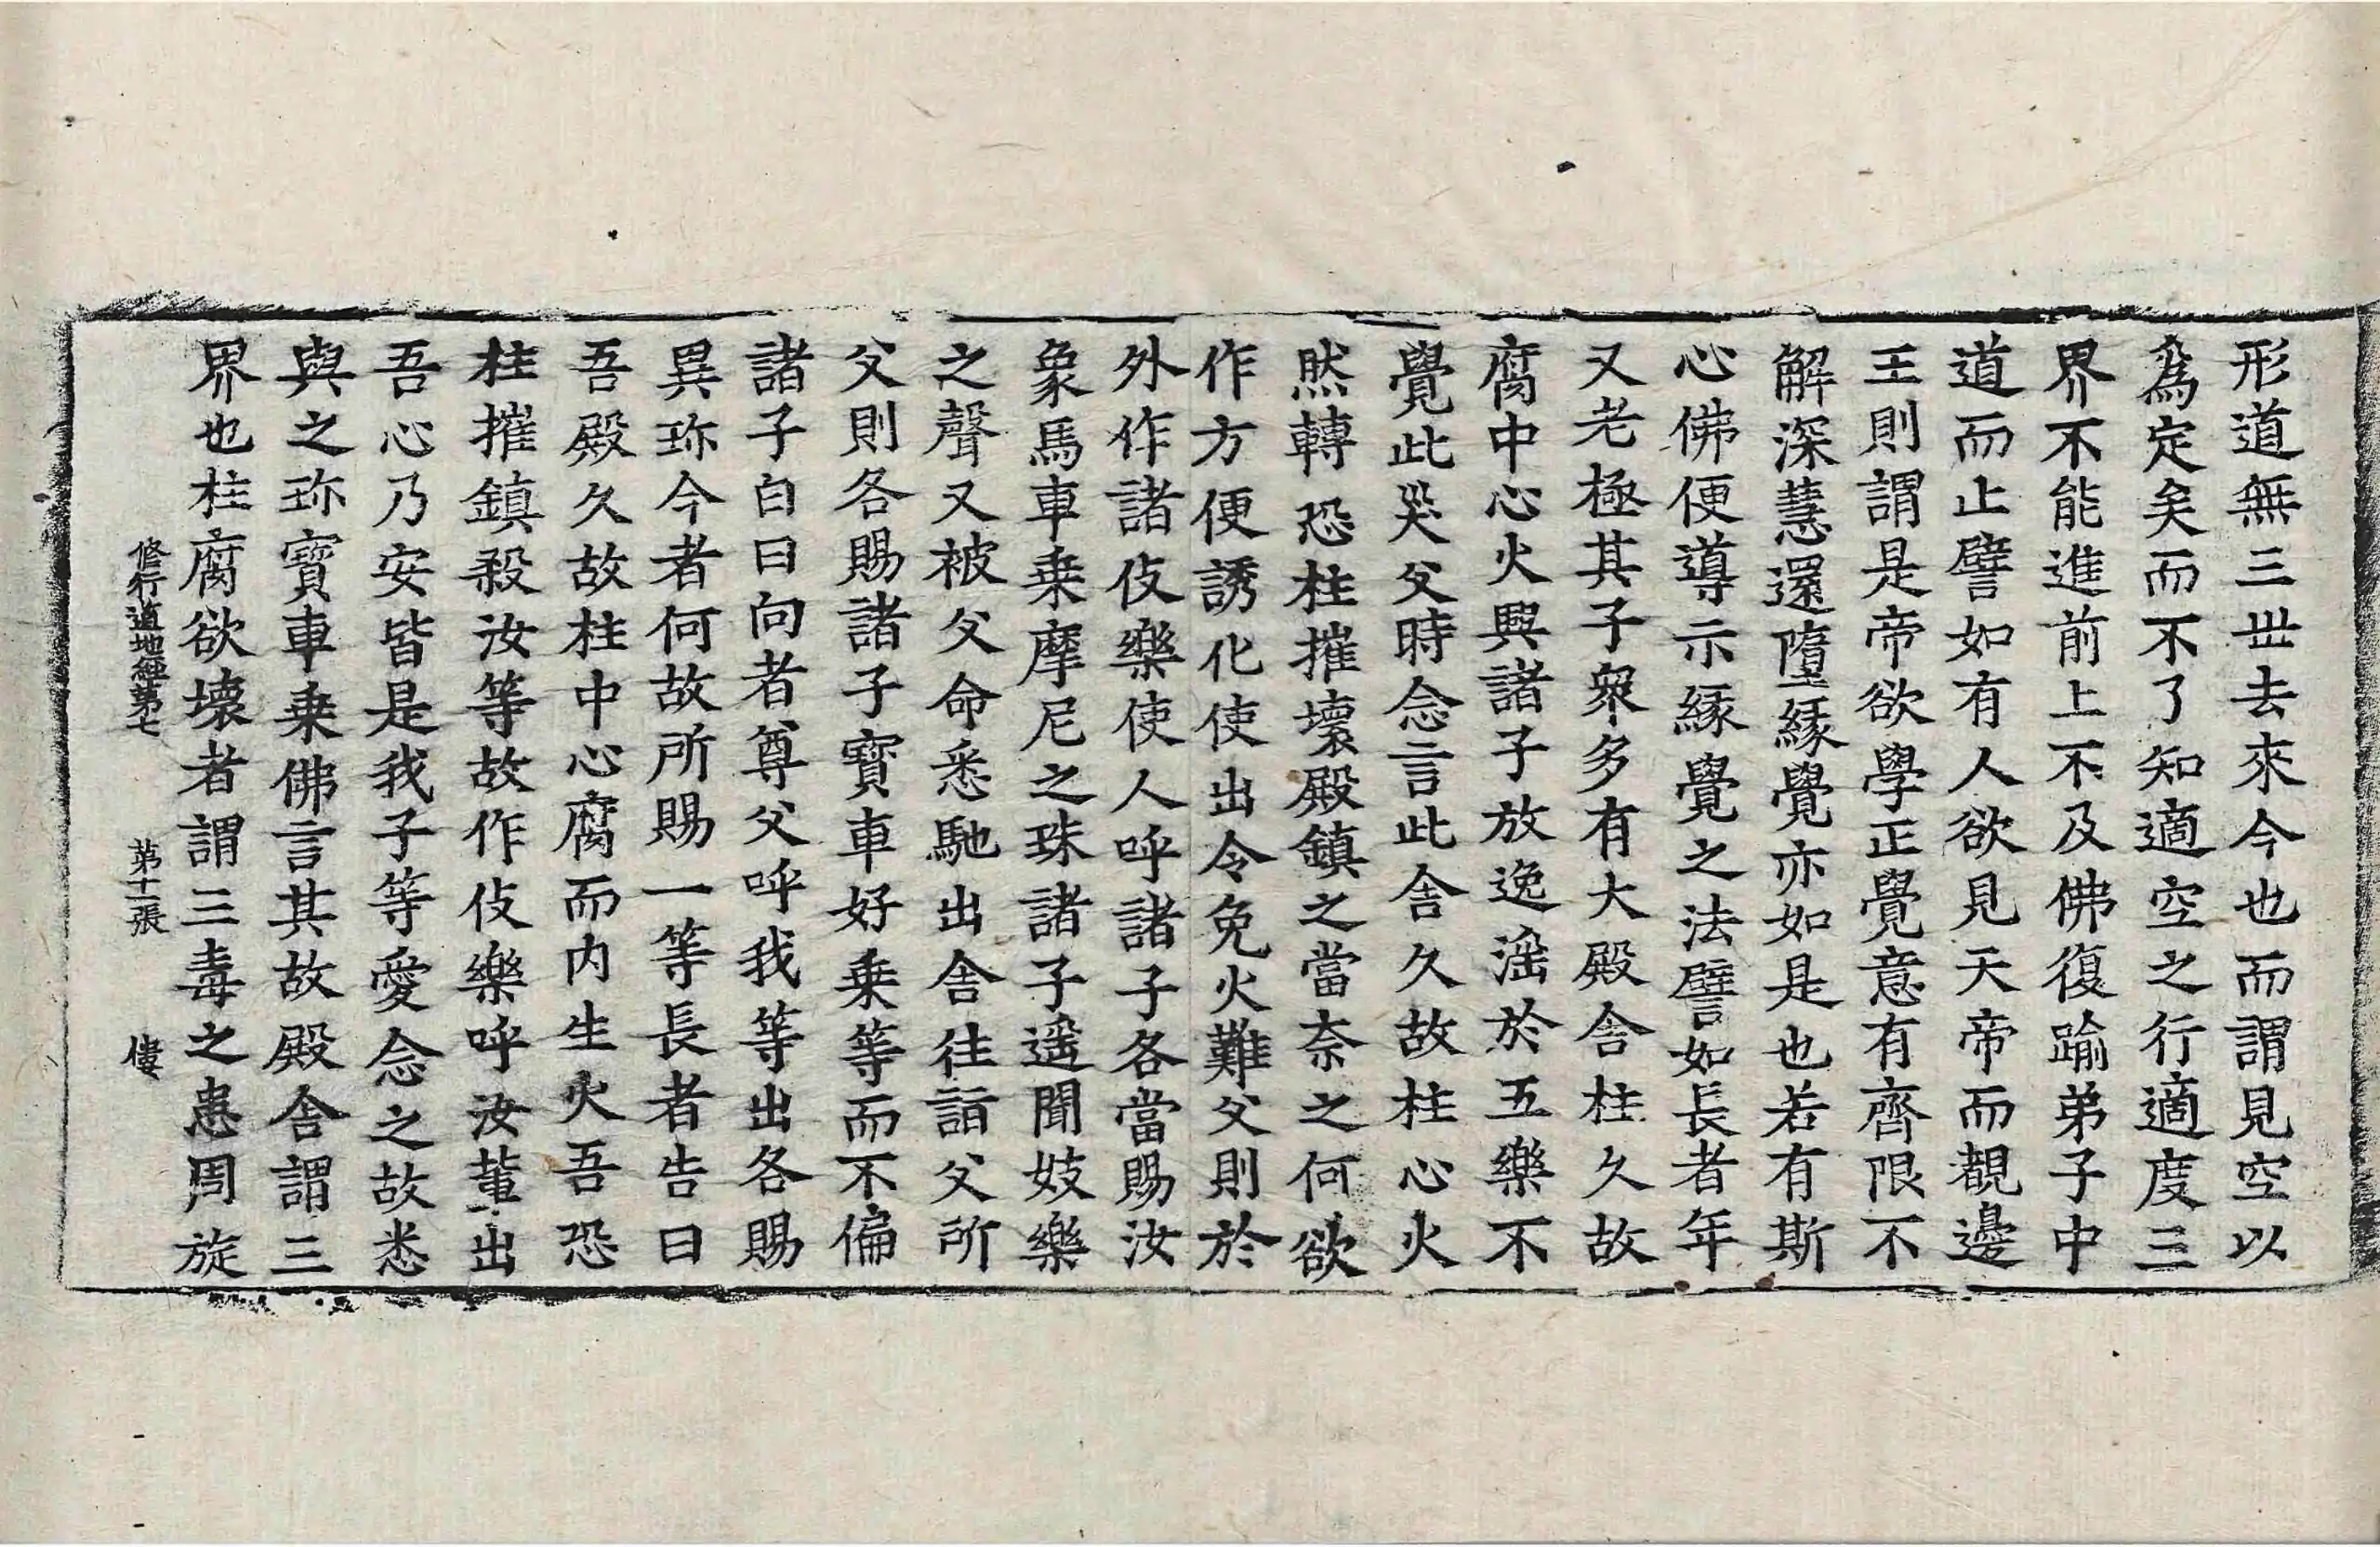 形道無三世去來今也而謂見空以
爲定矣而不了知適空之行適度三
界不能進前上不及佛復踰弟子中
道而止譬如有人欲見天帝而覩邊
王則謂是帝欲學正覺意有齊限不
解深慧還墮緣覺亦如是也若有斯
心佛便導示緣覺之法譬如長者年
又老極其子衆多有大殿舍柱久故
腐中心火興諸子放逸滛於五樂不
覺此災父時念言此舍久故柱心火
然轉恐柱摧壞殿鎮之當奈之何欲
作方便誘化使出令免火難父則於
外作諸伎樂使人呼諸子各當賜汝
象馬車乗摩尼之珠諸子遥聞妓樂
之聲又被父命悉馳出舍往詣父所
父則各賜諸子寳車好乗等而不偏
諸子白曰向者尊父呼我等出各賜
異珎今者何故所賜一等長者告曰
吾殿久故柱中心腐而内生火吾恐
柱摧鎮殺汝等故作伎樂呼汝輩出
吾心乃安皆是我子等愛念之故悉
與之珎寳車乗佛言其故殿舍謂三
界也柱腐欲壞者謂三毒之患周旋
修行道地經第七　第十一張　㒎